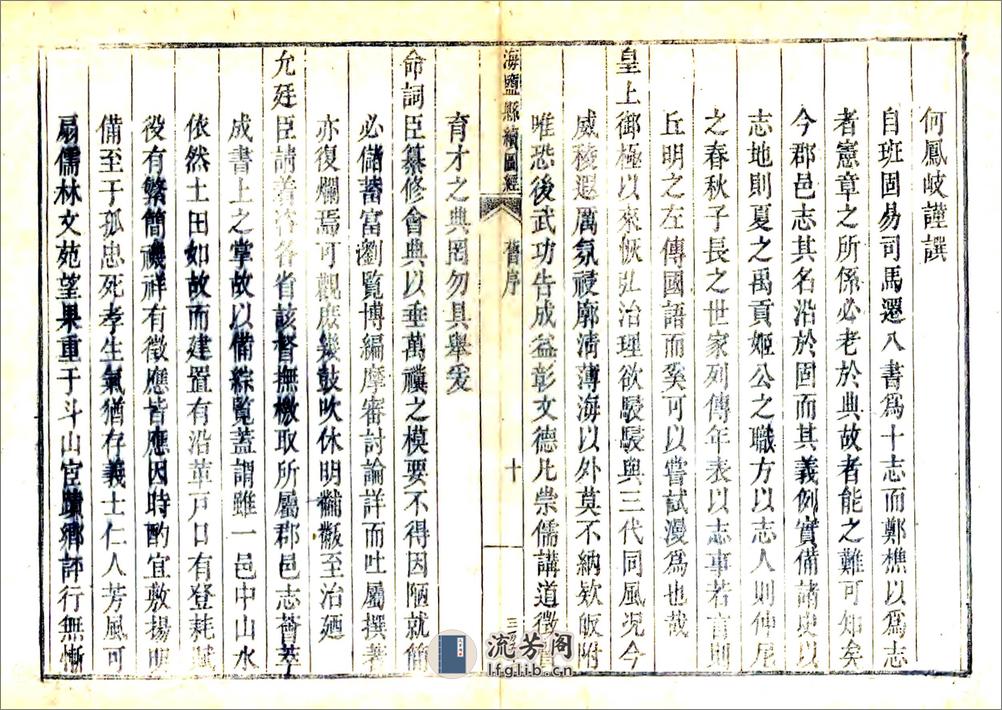 何鳳岐謹譔
自班固易司馬遷八書為十志而鄭樵以為志
者憲章之所係必老於典故者能之難可知矣
今郡邑志其名沿於固而其義例實備諸史以
志地則夏之禹貢姬公之職方以志人則仲尼
之春秋子長之世家列傳年表以志事若言則
丘明之左傳國語而奚可以嘗試漫為也哉
皇上御極以來恢弘治理欲駸駸與三代同風況今
威稜遐厲氛祲廓清薄海以外莫不納欵皈附
唯恐後武功告成益彰文德凡崇儒講道徵
海鹽縣續圖經
舊序
十
育才之典罔勿具舉爰
命詞臣纂修會典以垂萬禩之模要不得因陋就簡
必儲蓄富劉覽博編摩審討論詳而吐屬撰著
亦復爛焉可觀庶幾鼓吹休明黼黻至治廼
允廷臣請著咨各省該督撫檄取所屬郡邑志薈萃
成書上之掌故以備綜覽蓋謂雖一邑中山水
依然土田如故而建置有沿革戸口有登耗賦
役有繁簡禨祥有徵應皆應因時酌宜敷揚明
備至于孤忠死孝生氣猶存義士仁人芳風可
扇儒林文苑望果重于斗山宦蹟鄉評行無慚
流芳阁
lfglib.cn